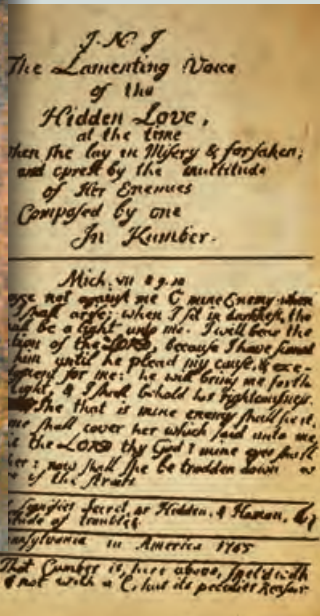 J. N. J
The Lamenting Voice
of the
Hidden Love,
at the time
When she lay in Misery & forsaken;
and oprest by the multitude
of Her Enemies
Composed by one
In Kumber.
Mich. vii 8 9. 10
not against me O mine Enemy when
I shall arise; when I sit in darkness, the
be a light unto me. I will bear the
of the LORD, because I have sinned
him until he plead my cause, & exe-
for me: he will bring me forth
light, & I shall behold his righteousness.
She that is mine enemy shall see it,
shall cover her which said unto me
is the LORD thy God? mine eyes shall
her: now shall she be trodden down
of the Streets
Secret, or Hidden, &
of troubles.
in America 1765
That Cumber is, here above, spel'd with
& not with a C, hat its peculiar Reason